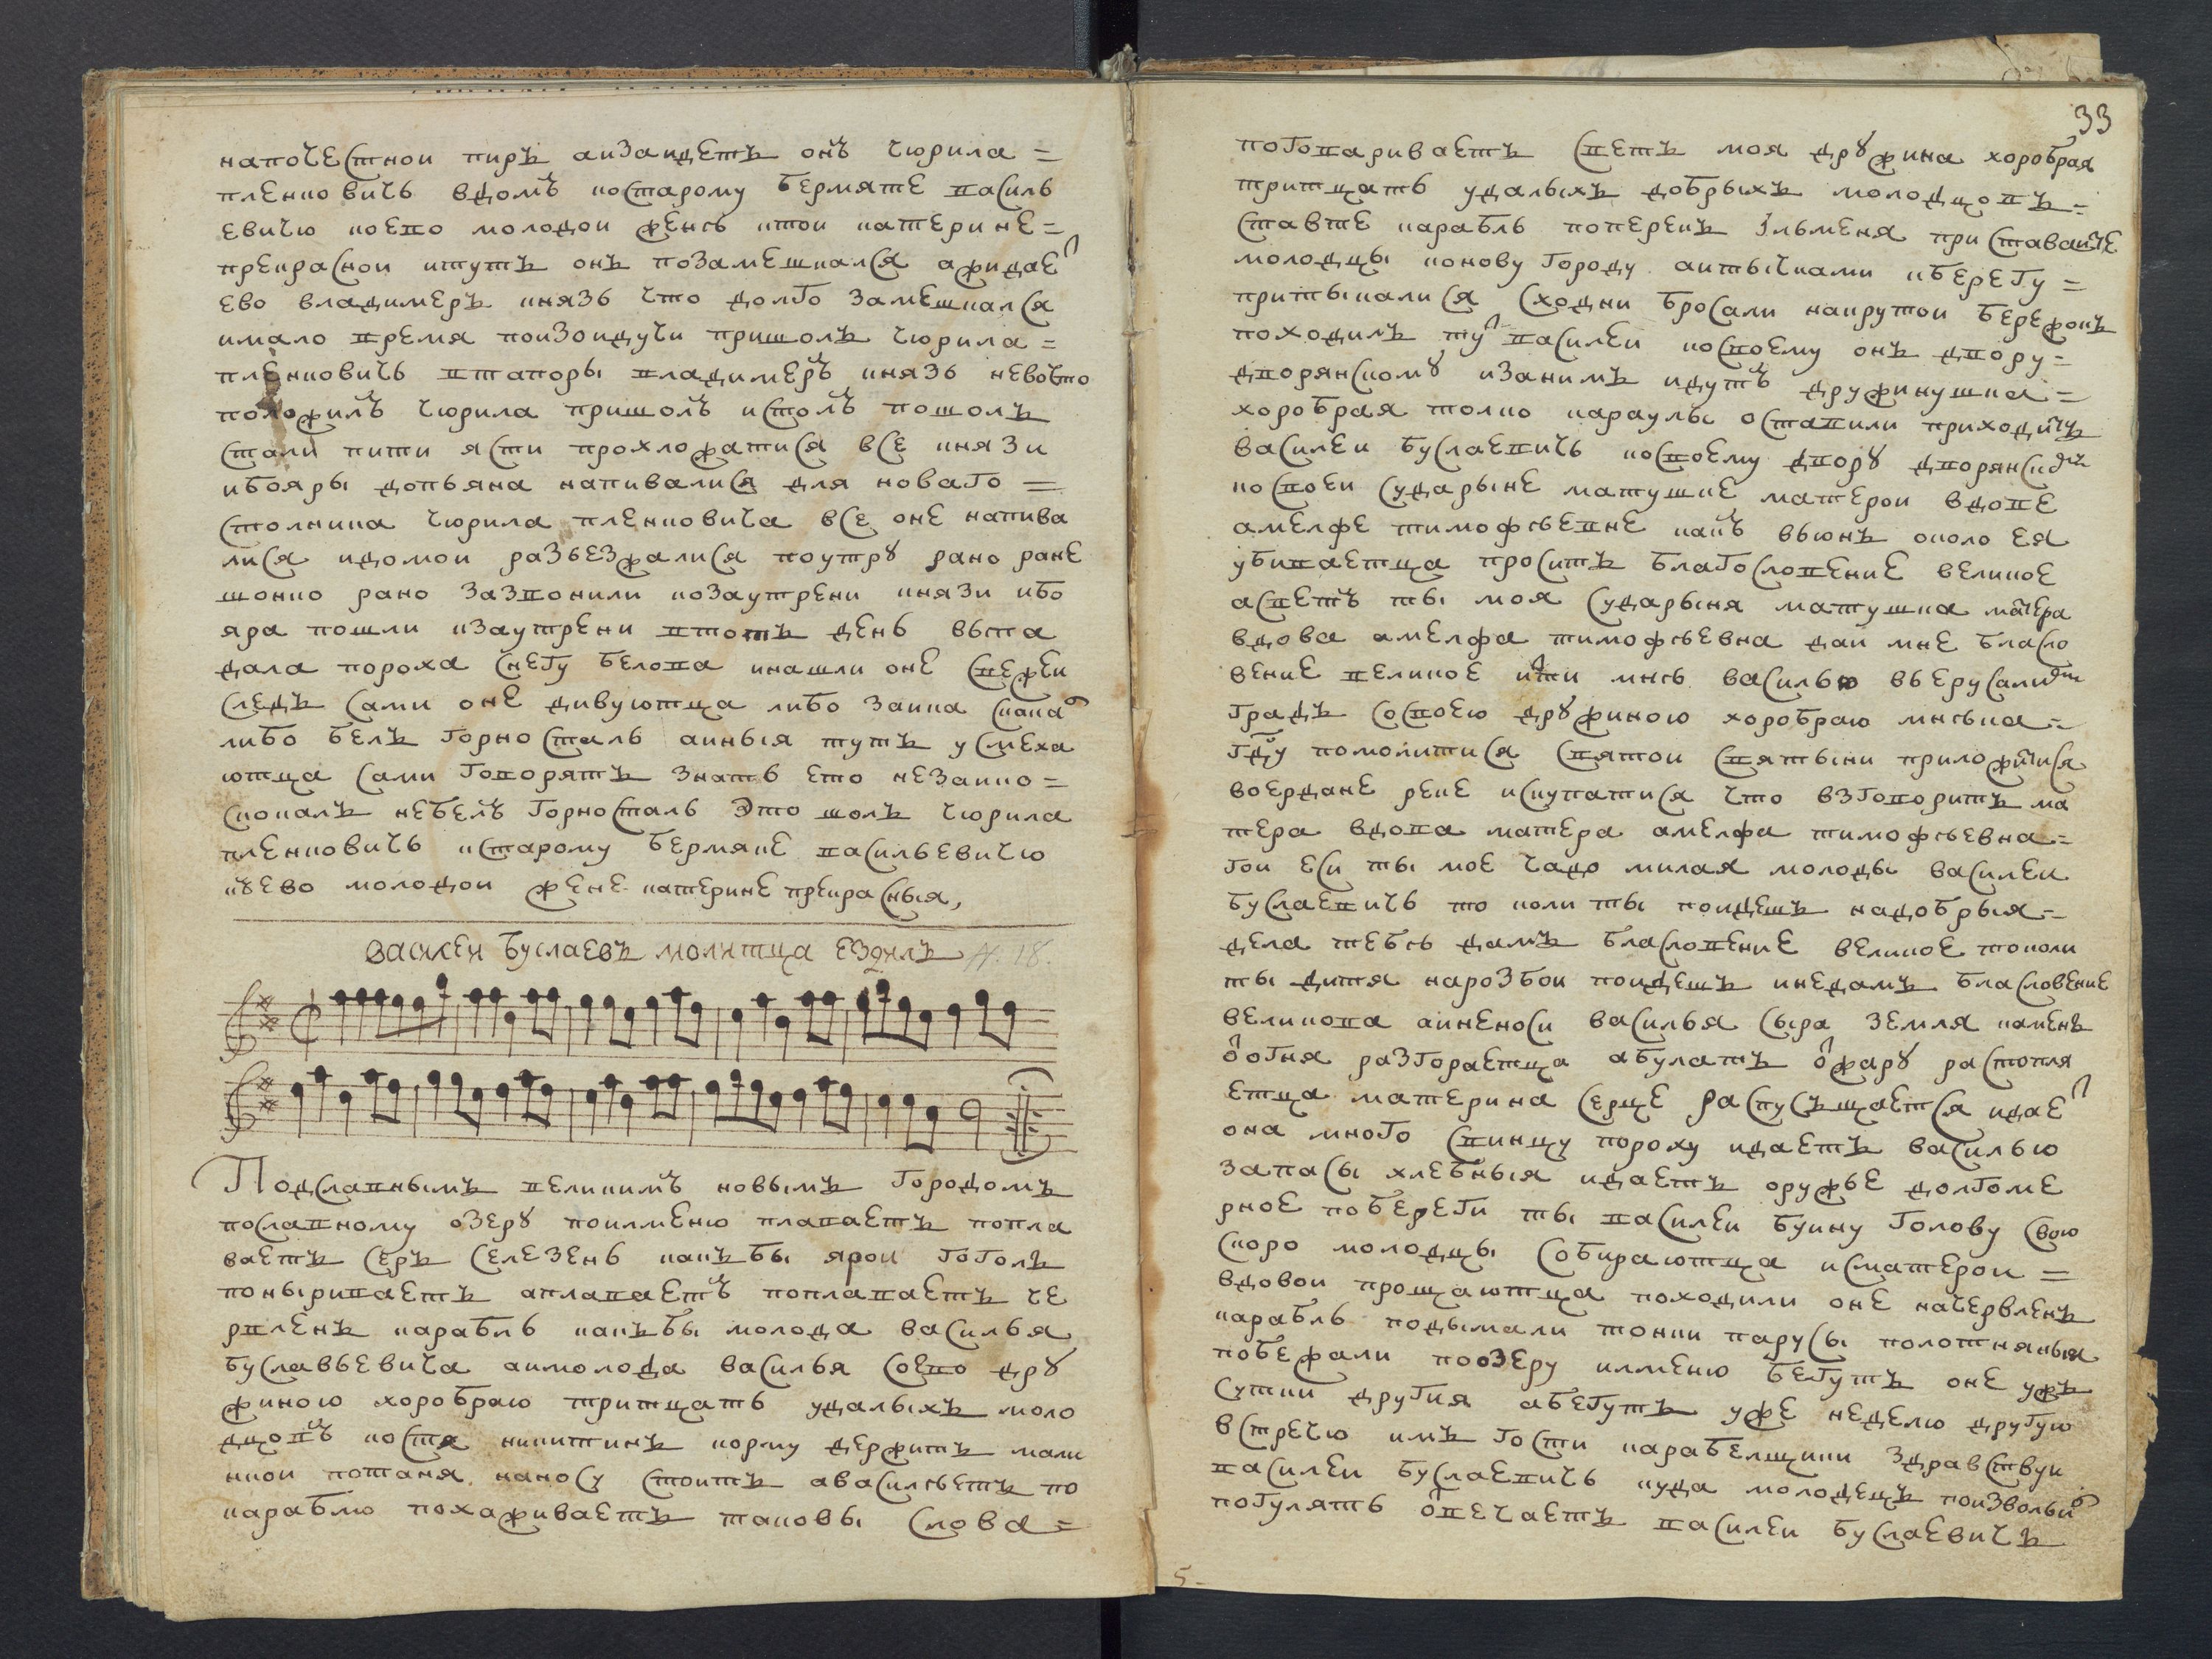 напочестнои пиръ аизаидетъ онъ чюрила =
пленковичь вдомъ кстарому бермяте василь
евичю коево молодои женѣ ктои катерине =
прекраснои итутъ онъ позамешкался ажидае
ево владимеръ князь что долго замешкался
имало время поизоидучи пришолъ чюрила =
пленковичь втапоры владимеръ князь невочто
положилъ чюрила пришолъ истолъ пошолъ
стали пити ясти прохложатися все князи
ибояры допьяна напивалися для новаго =
столника чюрила пленковича все оне напива
лися идомои разъезжалися поутру рано ране
шонко рано зазвонили кзаутрени князи ибо
яра пошли кзаутрени втотъ день выпа
дала пороха снегу белова инашли оне свежеи
следъ сами оне дивуютца либо заика скака
либо белъ горносталь аиныя тутъ усмеха
ютца сами говорятъ знать ето незаико =
скокалъ небелъ горносталь это шолъ чюрила
пленковичь кстарому бермяке васильевичю
кево молодои жене катерине прекрасныя,
василеи буслаевъ молитца ездилъ N. 18.
Подславнымъ великимъ новымъ городомъ
пославному озеру поилменю плаваетъ попла
ваетъ серъ селезень какъбы ярои гоголь
поныриваетъ аплаваетъ поплаваетъ че
рвленъ карабль какъбы молода василья
буславьевича аимолода василья соево дру
жиною хоробраю тритцать удалыхъ моло
дцовъ костя никитинъ корму держитъ мале
нкои потаня наносу стоитъ авасилѣетъ по
караблю похаживаетъ таковы слова =
33
поговариваетъ светъ моя дружина хоробрая
тритцать удалыхъ добрыхъ молодцовъ =
ставте карабль поперекъ ильменя приставаите
молодцы конову городу аитычками кберегу =
притыкалися сходни бросали накрутои бережокъ
походилъ ту василеи ксвоему онъ двору =
дворянскому изанимъ идутъ дружинушка =
хоробрая толко караулы оставили приходитъ
василеи буслаевичь ксвоему двору дворянск
ксвоеи сударыне матушке матерои вдове
амелфе тимофѣевне какъ вьюнъ около ея
убиваетца проситъ благословение великое
асветъ ты моя сударыня матушка матера
вдова амелфа тимофѣевна даи мне бласло
вение великое итти мнѣ василью вьерусалим
градъSсвоею дружиною хоробраю мнѣка =
гдѹ помолитися святои святыни приложитися
воердане реке искупатися что взговоритъ ма
тера вдова матера амелфа тимофѣевна =
гои еси ты мое чадо милая молоды василеи
буслаевичь то коли ты поидешъ надобрыя =
дела тебѣ дамъ благословение великое токоли
ты дитя наразбои поидешъ инедамъ благословение
великова аиненоси василья сыра земля каменъ
отогня разгораетца абулатъ отжару растопля
етца материна серце распусъщается идае
она много свинцу пороху идаетъ василью
запасы хлебныя идаетъ оружье долгоме
рное побереги ты василеи буину голову свою
скоро молодцы собираютца исматерои =
вдовои прощаютца походили оне начервленъ
карабль подымали тонки парусы полотняныя
побежали поозеру илменю бегутъ оне ужъ
сутки другия абегутъ уже неделю другую
встречю имъ гости карабелщики здравствуи
василеи буслаевичь куда молодецъ поизволи
погулять отвечаетъ василеи буслаевичъ
5